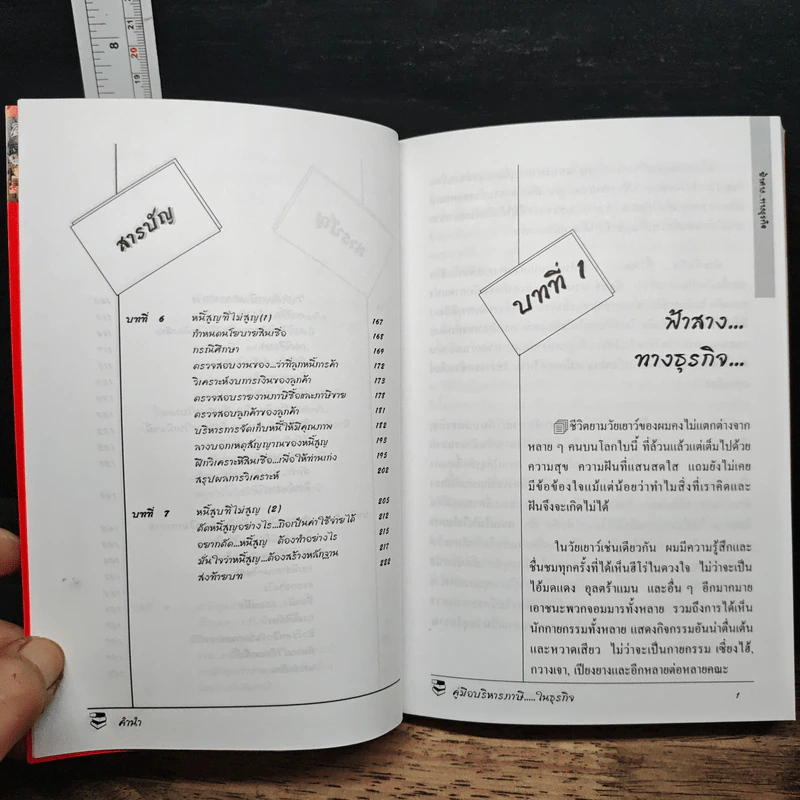 สารบัญ
บทที่ 6 หนี้สูญที่ไม่สูญ(1) 167
กำหนดนโยบายสินเชื่อ 168
กรณีศึกษา 169
ตรวจสอบงานของ...ว่าที่ลูกหนี้การค้า 172
วิเคราะห์งบการเงินของลูกค้า 173
ตรวจสอบรายงานภาษีซื้อและภาษีขาย 178
ตรวจสอบลูกค้าของลูกค้า 181
บริหารการจัดเก็บหนี้ให้มีคุณภาพ 182
ลางบอกเหตุสัญญาณของหนี้สูญ 193
ฝึกวิเคราะห์สินเชื่อ...เพื่อให้ท่านเก่ง 195
สรุปผลการวิเคราะห์ 202
บทที่ 7 หนี้สูบที่ไม่สูญ (2) 205
ตัดหนี้สูญอย่างไร...ถือเป็นค่าใช้จ่ายได้ 212
อยากตัด...หนี้สูญ ต้องทำอย่างไร 215
มั่นใจว่าหนี้สูญ...ต้องสร้างหลักฐาน 217
ส่งท้ายบท 222
คำนำ
ฟ้าสาง...ทางธุรกิจ
บทที่ 1
ฟ้าสาง...
ทางธุรกิจ...
ชีวิตยามวัยเยาว์ของผมคงไม่แตกต่างจาก
หลาย ๆ คนบนโลกใบนี้ ที่ล้วนแล้วแต่เต็มไปด้วย
ความสุข ความฝันที่แสนสดใส แถมยังไม่เคย
มีข้อข้องใจแม้แต่น้อยว่าทำไมสิ่งที่เราคิดและ
ฝันจึงจะเกิดไม่ได้
ในวัยเยาว์เช่นเดียวกัน ผมมีความรู้สึกและ
ชื่นชมทุกครั้งที่ได้เห็นฮีโร่ในดวงใจ ไม่ว่าจะเป็น
ไอ้มดแดง อุลตร้าแมน และอื่น ๆ อีกมากมาย
เอาชนะพวกจอมมารทั้งหลาย รวมถึงการได้เห็น
นักกายกรรมทั้งหลาย แสดงกิจกรรมอันน่าตื่นเต้น
และหวาดเสียว ไม่ว่าจะเป็นกายกรรม เซี่ยงไฮ้,
กวางเจา, เปียงยางและอีกหลายต่อหลายคณะ
คู่มือบริหารภาษี.....ในธุรกิจ 1
8
21
20
19